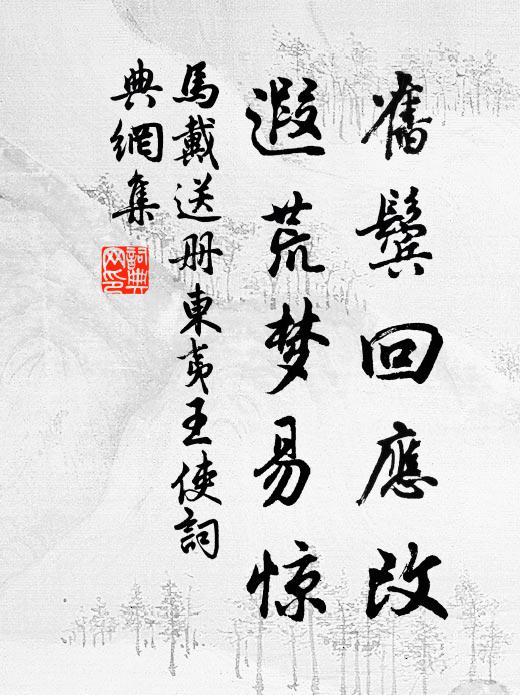 舊鬢回應改
遐荒梦易惊
馬戴送册東夷王使詞
典網集
詞典
网印